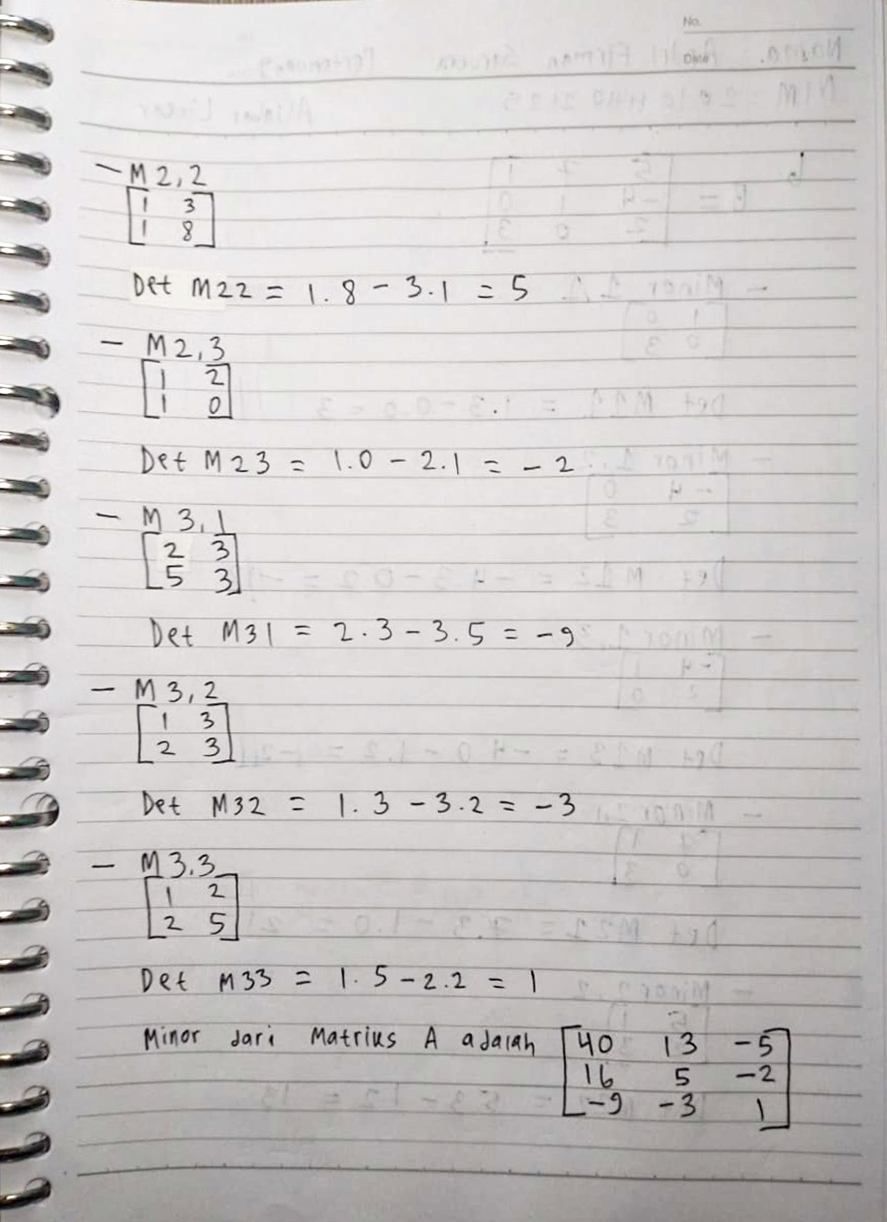 No.
Date
- M 2,2
[1 3
1 8]
Det M22 = 1.8 - 3.1 = 5
- M 2,3
[1 2
1 0]
Det M23 = 1.0 - 2.1 = -2
- M 3,1
[2 3
5 3]
Det M31 = 2.3 - 3.5 = -9
- M 3,2
[1 3
2 3]
Det M32 = 1.3 - 3.2 = -3
- M 3.3
[1 2
2 5]
Det M33 = 1.5 - 2.2 = 1
Minor dari Matriks A adalah [40 13 -5
16 5 -2
-9 -3 1]